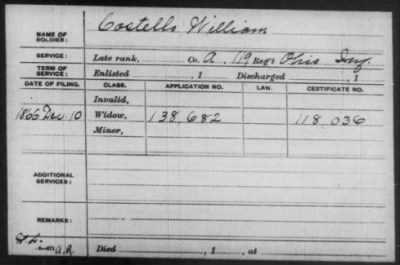 NAME OF SOLDIER: Costello, William
SERVICE: Late rank, Co. A, 119 Reg't Ohio Inf.
TERM OF SERVICE: Enlisted , 1 Discharged , 1
DATE OF FILING. CLASS. APPLICATION NO. LAW. CERTIFICATE NO.
Invalid,
1866 Dec. 10 Widow, 138,682 118,036
Minor,
ADDITIONAL SERVICES:
REMARKS:
Died , 1 , at